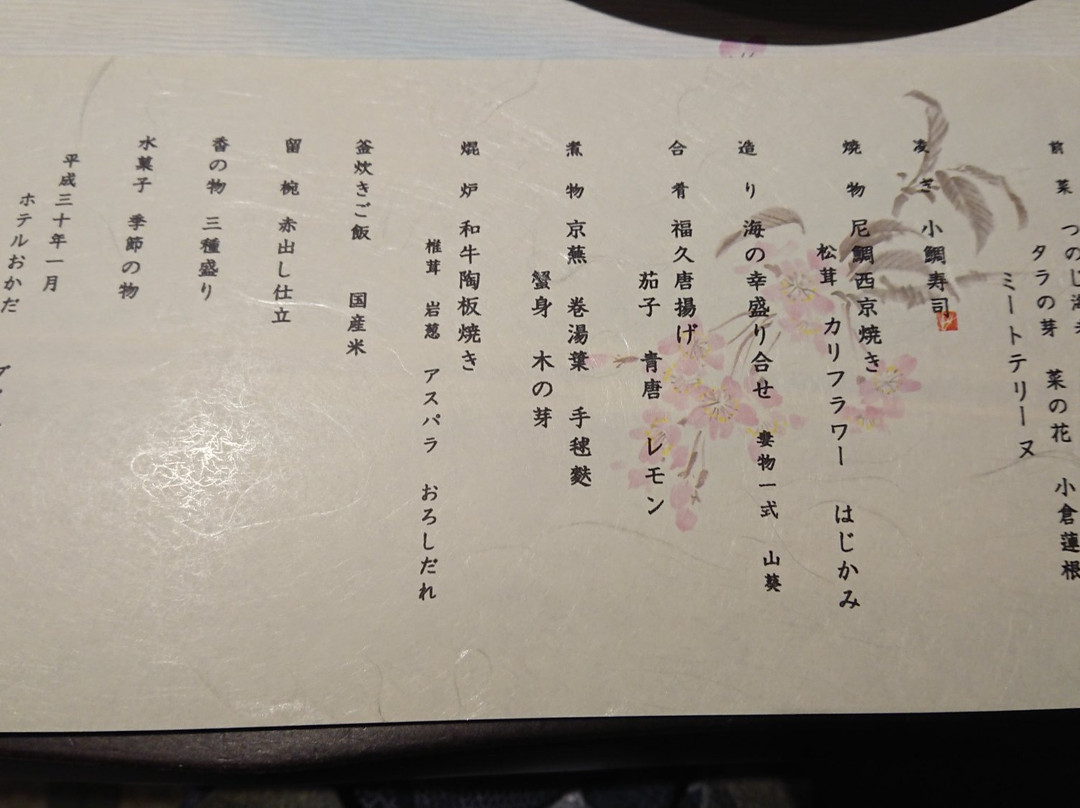 前菜 つのじ海老 菜の花 小倉蓮根
タラの芽
ミートテリーヌ
凌ぎ 小鯛寿司
焼物 尼鯛西京焼き
松茸 カリフラワー はじかみ
造り 海の幸盛り合せ 妻物一式 山葵
合肴 福久唐揚げ
茄子 青唐 レモン
煮物 京蕪 巻湯葉 手毬麩
蟹身 木の芽
焜炉 和牛陶板焼き
椎茸 岩葱 アスパラ おろしだれ
釜炊きご飯 国産米
留椀 赤出し仕立
香の物 三種盛り
水菓子 季節の物
平成三十年一月
ホテルおかだ